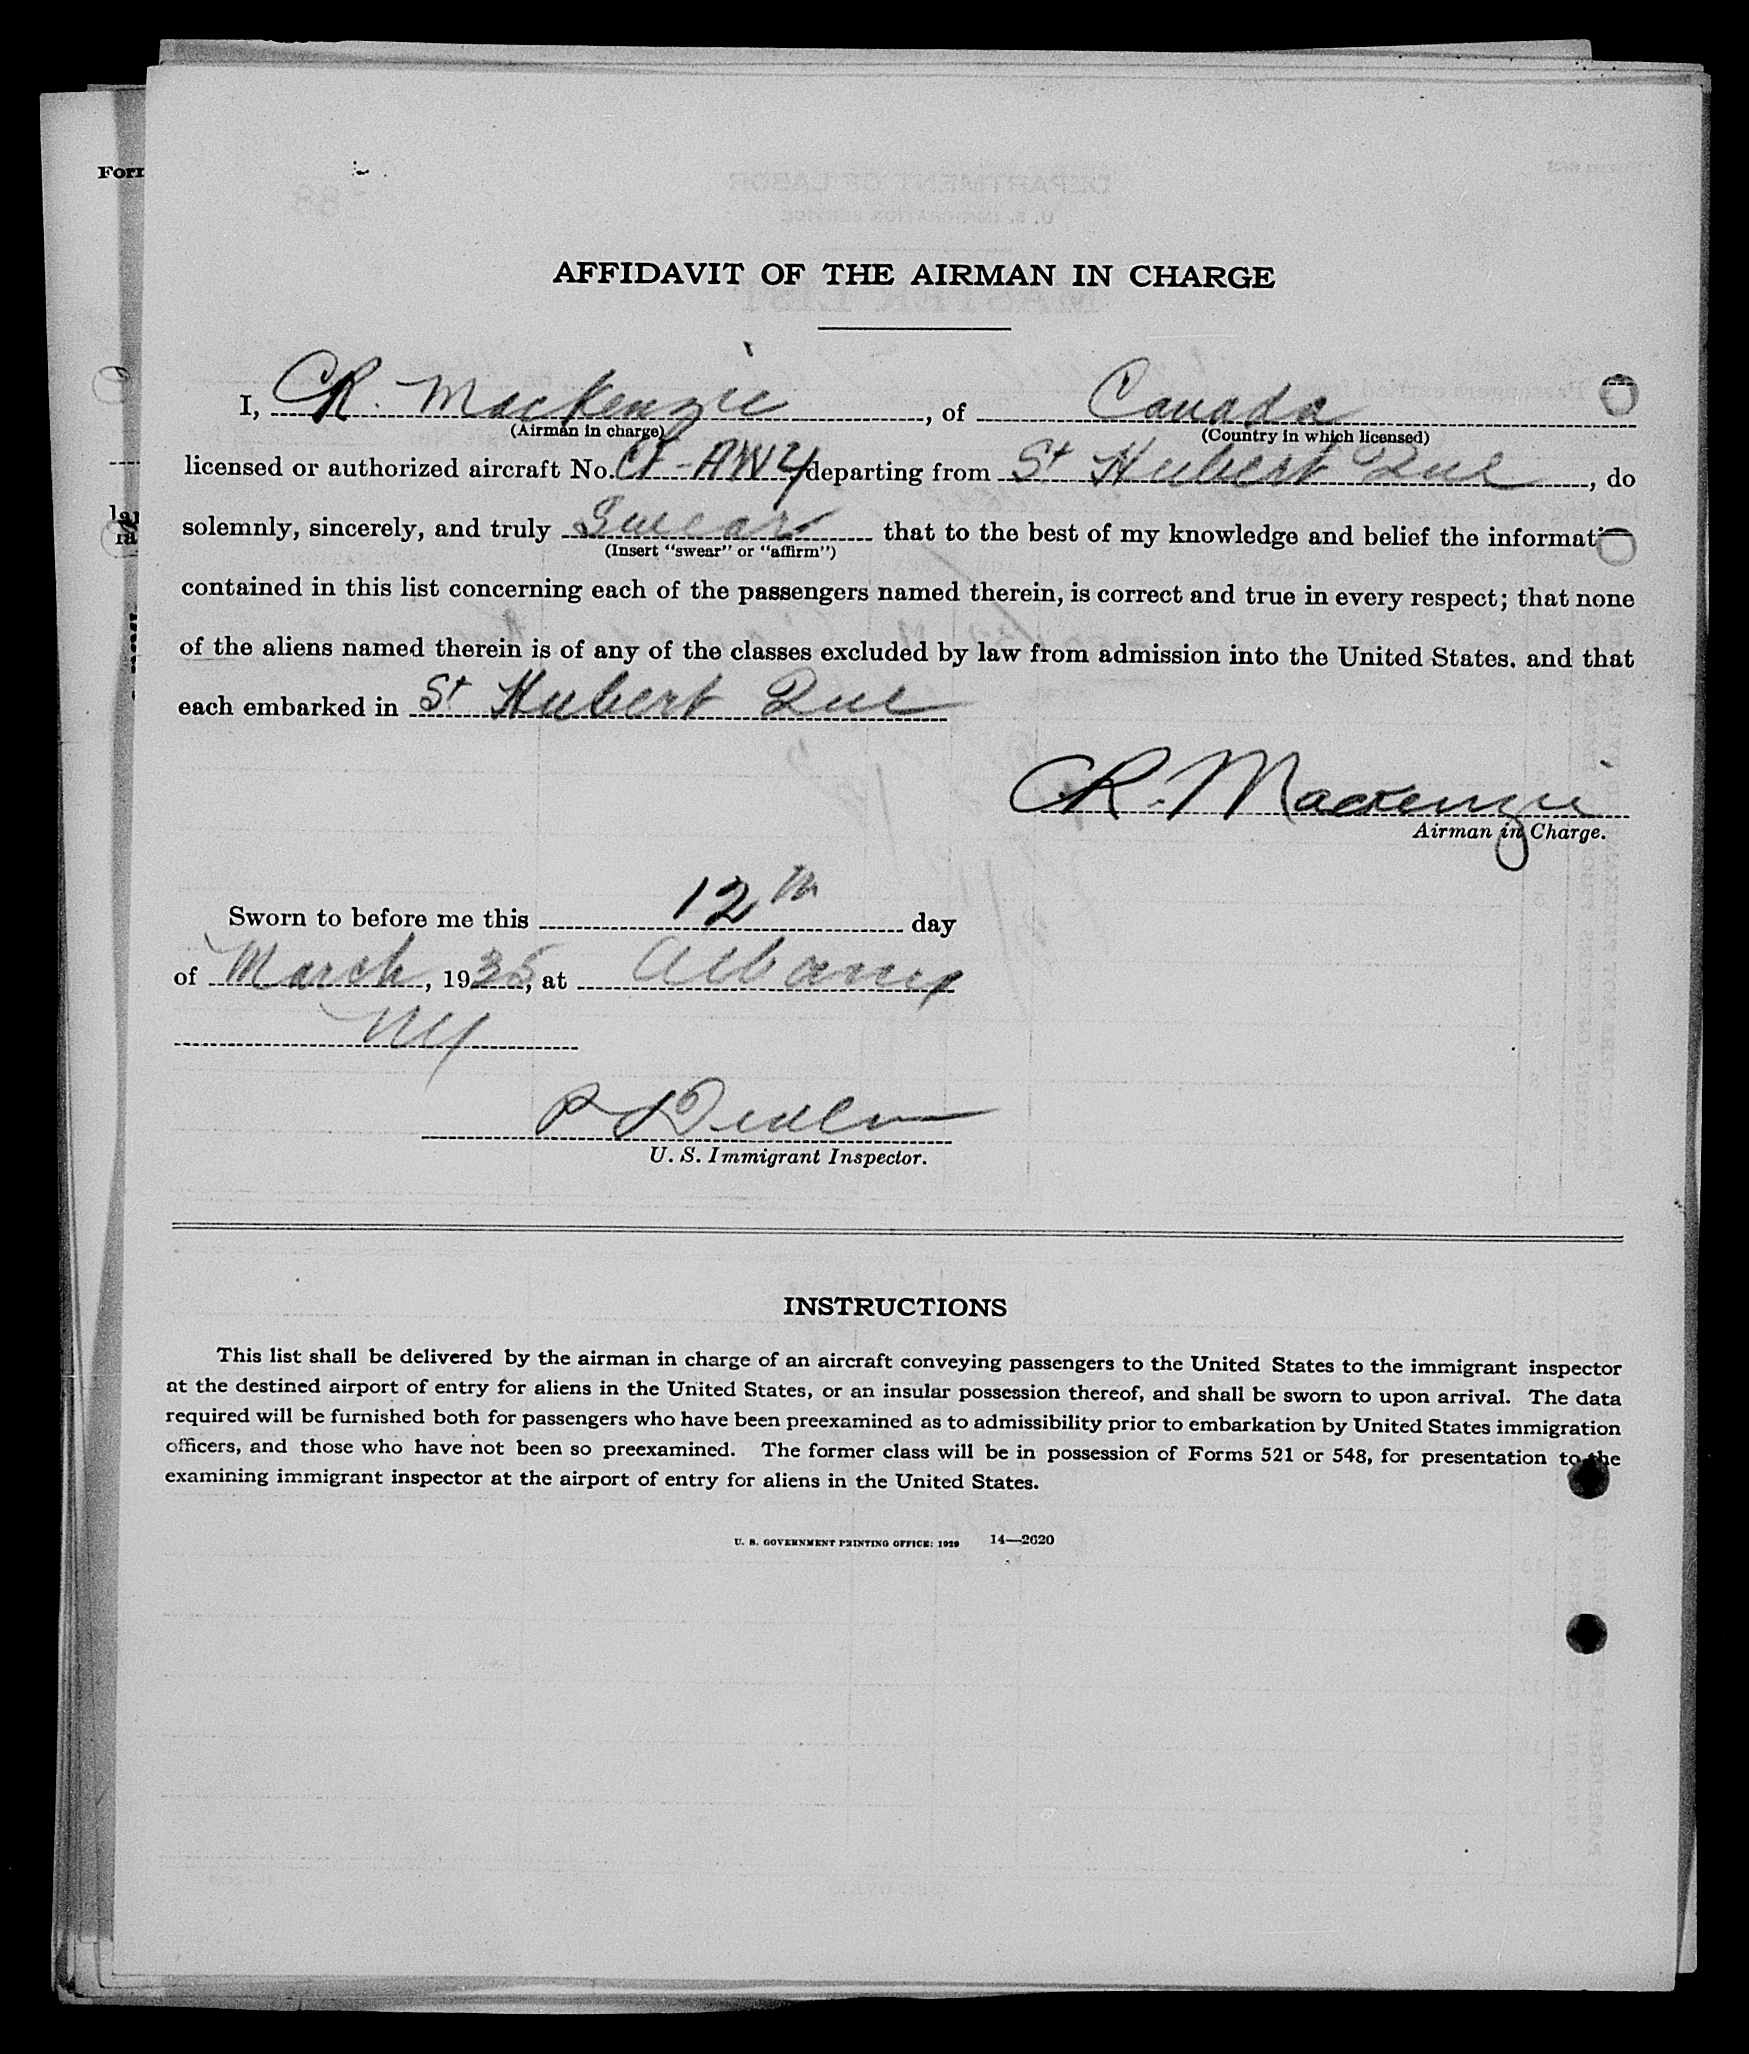 Forr
AFFIDAVIT OF THE AIRMAN IN CHARGE
I, CR. Mackenzie, of Canada
(Airman in charge) (Country in which licensed)
licensed or authorized aircraft No. CF-AWY departing from St Hubert Que, do
solemnly, sincerely, and truly Swear that to the best of my knowledge and belief the informati
(Insert "swear" or "affirm")
contained in this list concerning each of the passengers named therein, is correct and true in every respect; that none
of the aliens named therein is of any of the classes excluded by law from admission into the United States, and that
each embarked in St Hubert Que
CR. Mackenzie
Airman in Charge.
Sworn to before me this 12th day
of March, 1935, at Albany
NY
U. S. Immigrant Inspector.
INSTRUCTIONS
This list shall be delivered by the airman in charge of an aircraft conveying passengers to the United States to the immigrant inspector
at the destined airport of entry for aliens in the United States, or an insular possession thereof, and shall be sworn to upon arrival. The data
required will be furnished both for passengers who have been preexamined as to admissibility prior to embarkation by United States immigration
officers, and those who have not been so preexamined. The former class will be in possession of Forms 521 or 548, for presentation to the
examining immigrant inspector at the airport of entry for aliens in the United States.
U. S. GOVERNMENT PRINTING OFFICE: 1929 14—2620